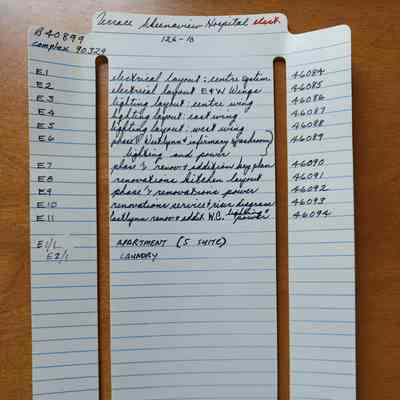 Terrace Skeenaview Hospital elect.
126-1B
B40899
complex 90329
E1 electrical layout: centre system 46084
E2 electrical layout E+W Wings 46085
E3 lighting layout: centre wing 46086
E4 lighting layout: east wing 46087
E5 lighting layout: west wing 46088
E6 phase & infirmary 46089
lighting and power
E7 phase 3 renov + addition key plan 46090
E8 renovations kitchen layout 46091
E9 phase 3 renovations power 46092
E10 renovations service & riser diagram 46093
E11 renov + addit. W.C. lighting + power 46094
E1/L APARTMENT (5 SUITE)
E2/1 LAUNDRY